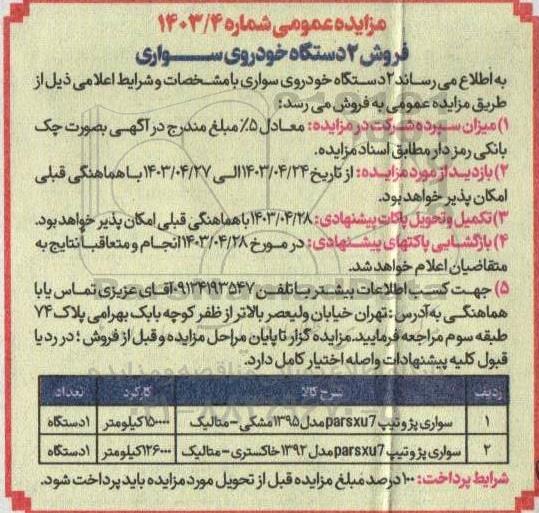 مزایده عمومی شماره ۱۴۰۳/۴
فروش ۲ دستگاه خودروی سواری
به اطلاع می رساند ۲ دستگاه خودروی سواری با مشخصات و شرایط اعلامی ذیل از
طریق مزایده عمومی به فروش می رسد:
۱) میزان سپرده شرکت در مزایده: معادل ۵٪ مبلغ مندرج در آگهی بصورت چک
بانکی رمز دار مطابق اسناد مزایده.
۲) بازدید از مورد مزایده: از تاریخ ۱۴۰۳/۰۴/۲۴ الی ۱۴۰۳/۰۴/۲۷ با هماهنگی قبلی
امکان پذیر خواهد بود.
۳) تکمیل و تحویل پاکات پیشنهادی: ۱۴۰۳/۰۴/۲۸ با هماهنگی قبلی امکان پذیر خواهد بود.
۴) بازگشایی پاکتهای پیشنهادی: در مورخ ۱۴۰۳/۰۴/۲۸ انجام و متعاقباً نتایج به
متقاضیان اعلام خواهد شد.
۵) جهت کسب اطلاعات بیشتر با تلفن ۰۹۱۲۴۱۹۳۵۴۷ آقای عزیزی تماس یا با
هماهنگی به آدرس: تهران خیابان ولیعصر بالاتر از ظفر کوچه بابک بهرامی پلاک ۷۴
طبقه سوم مراجعه فرمایید. مزایده گزار تا پایان مراحل مزایده و قبل از فروش؛ در رد یا
قبول کلیه پیشنهادات واصله اختیار کامل دارد.
ردیف شرح کالا کارکرد تعداد
۱ سواری پژو تیپ parsxu7 مدل ۱۳۹۵ مشکی - متالیک ۱۵۰۰۰۰ کیلومتر ۱ دستگاه
۲ سواری پژو تیپ parsxu7 مدل ۱۳۹۲ خاکستری - متالیک ۱۲۶۰۰۰ کیلومتر ۱ دستگاه
شرایط پرداخت: ۱۰۰ درصد مبلغ مزایده قبل از تحویل مورد مزایده باید پرداخت شود.